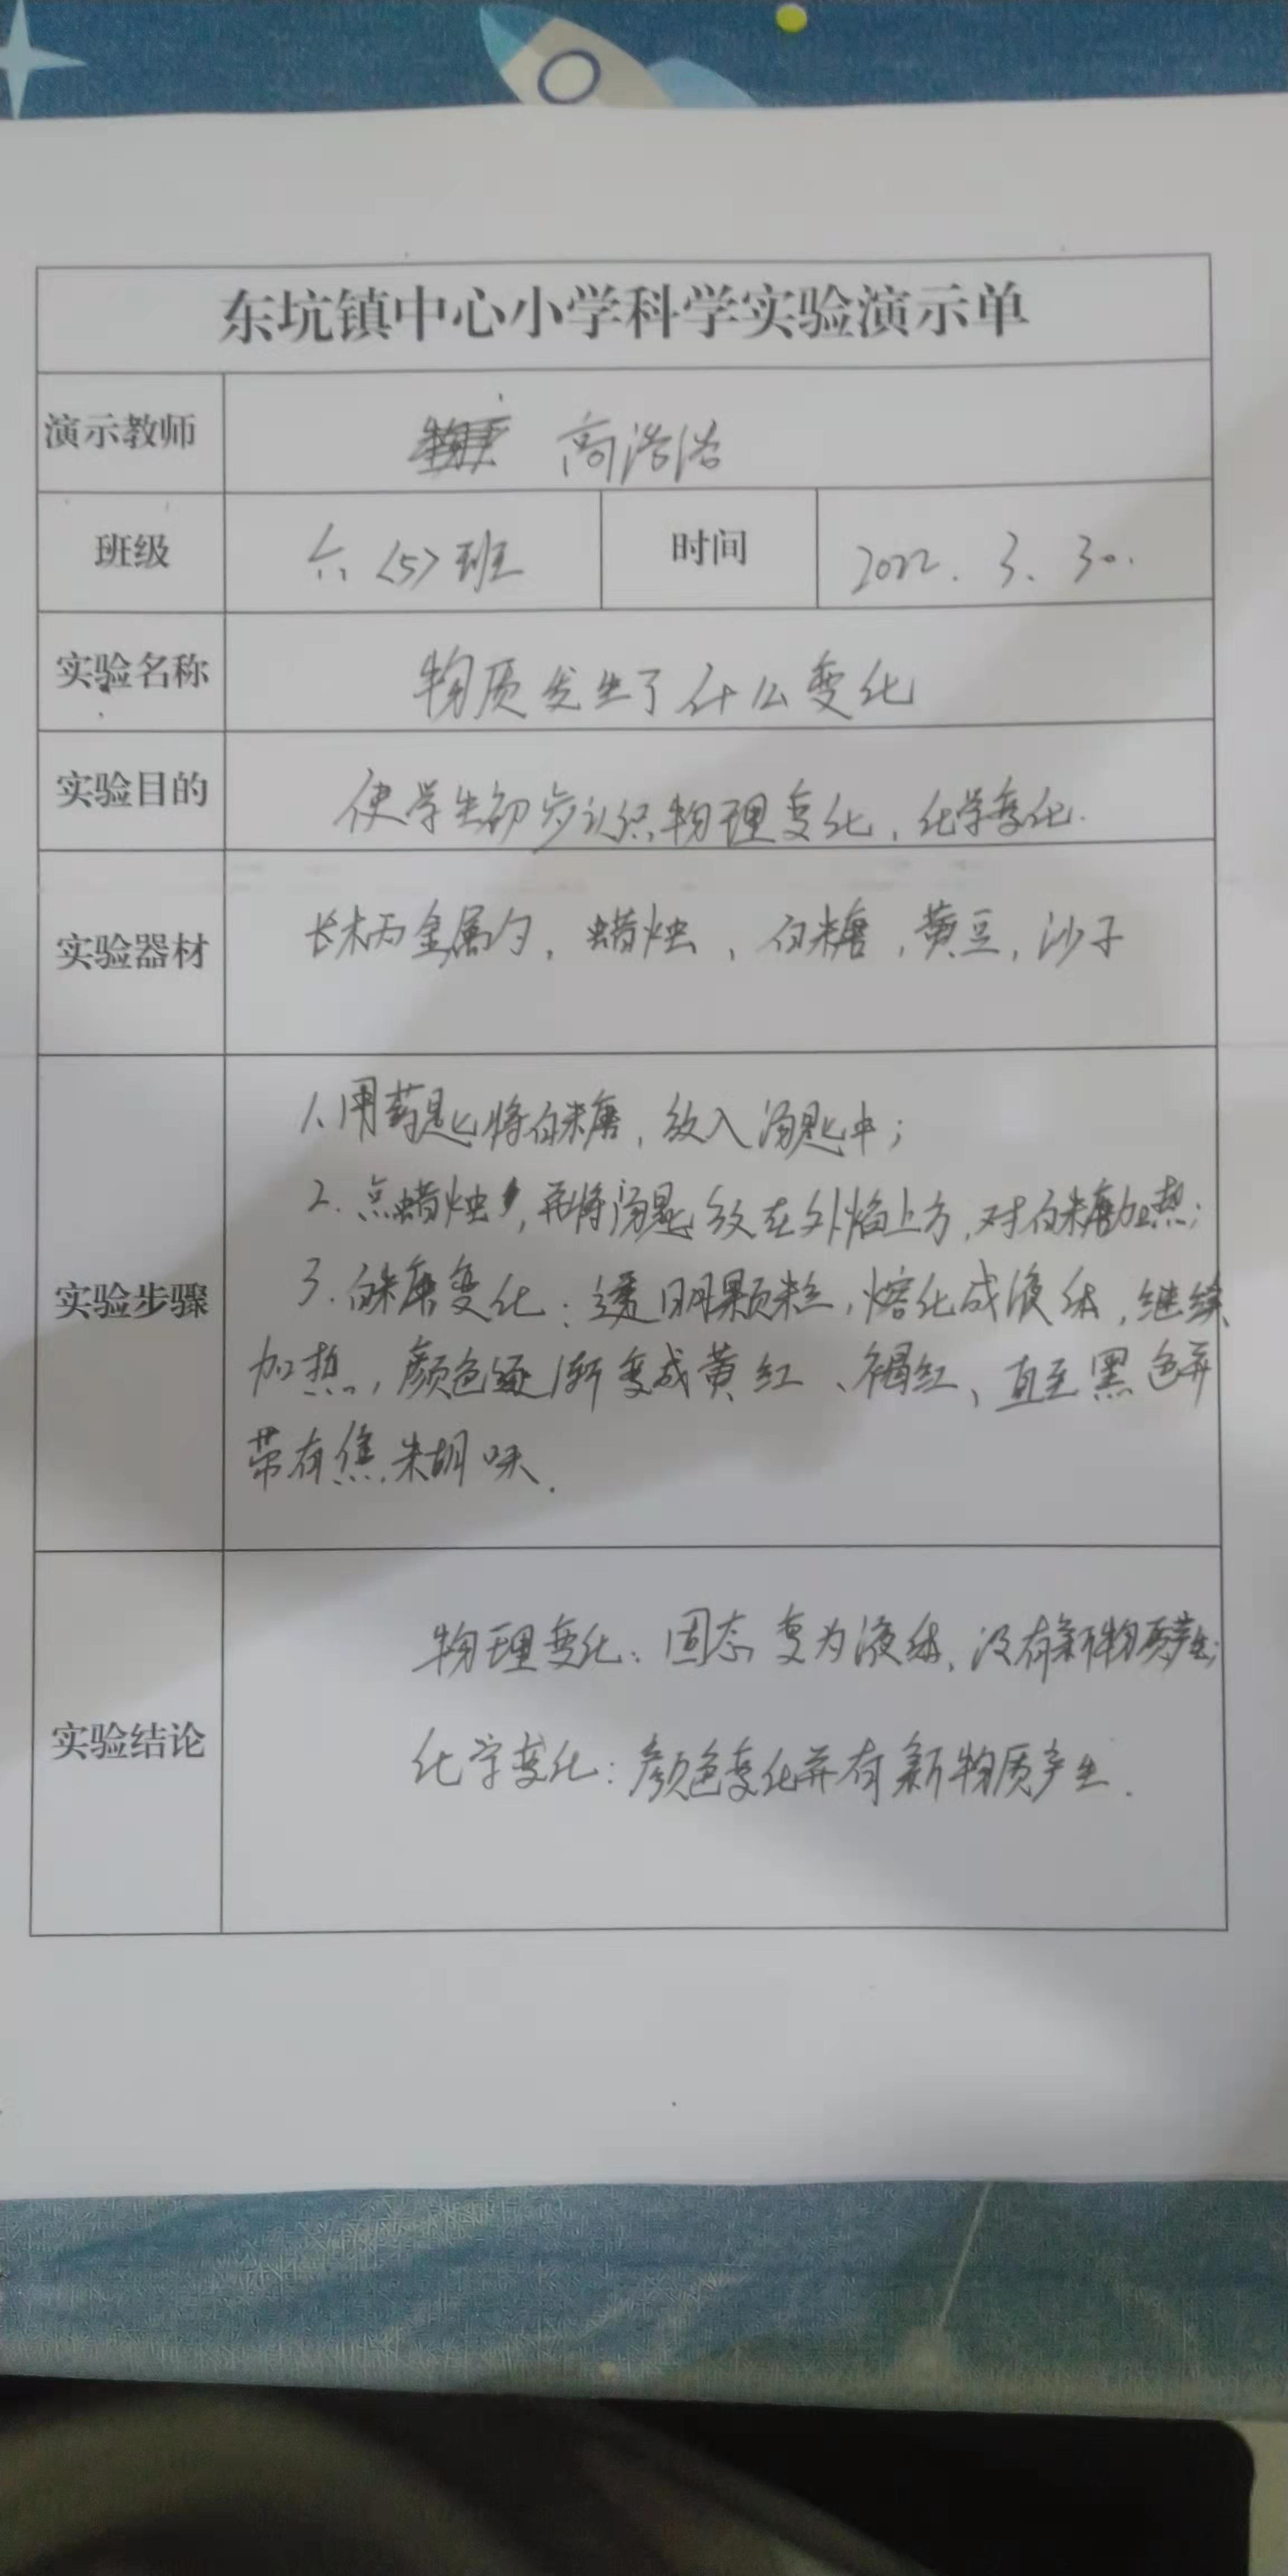 东坑镇中心小学科学实验演示单
演示教师 高浩浩
班级 六〈5〉班 时间 2022.3.30.
实验名称 物质发生了什么变化
实验目的 使学生初步认识物理变化、化学变化.
实验器材 长柄金属勺,蜡烛,白糖,黄豆,沙子
1.用药匙将白糖,放入汤匙中;
2.点蜡烛,再将汤匙放在外焰上方,对白糖加热;
实验步骤 3.白糖变化:透明颗粒,熔化成液体,继续
加热,颜色逐渐变成黄红、褐红、直至黑色并
带有焦糊味.
物理变化:固态变为液体,没有新物质产生;
实验结论
化学变化:颜色变化并有新物质产生.